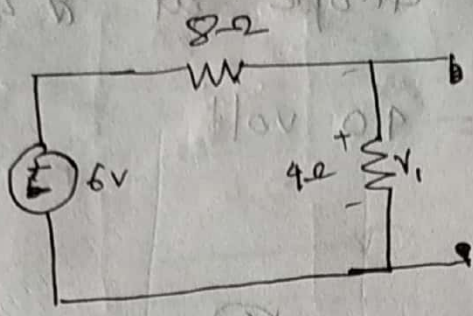 8Ω
6V
4Ω
+
V₁
-